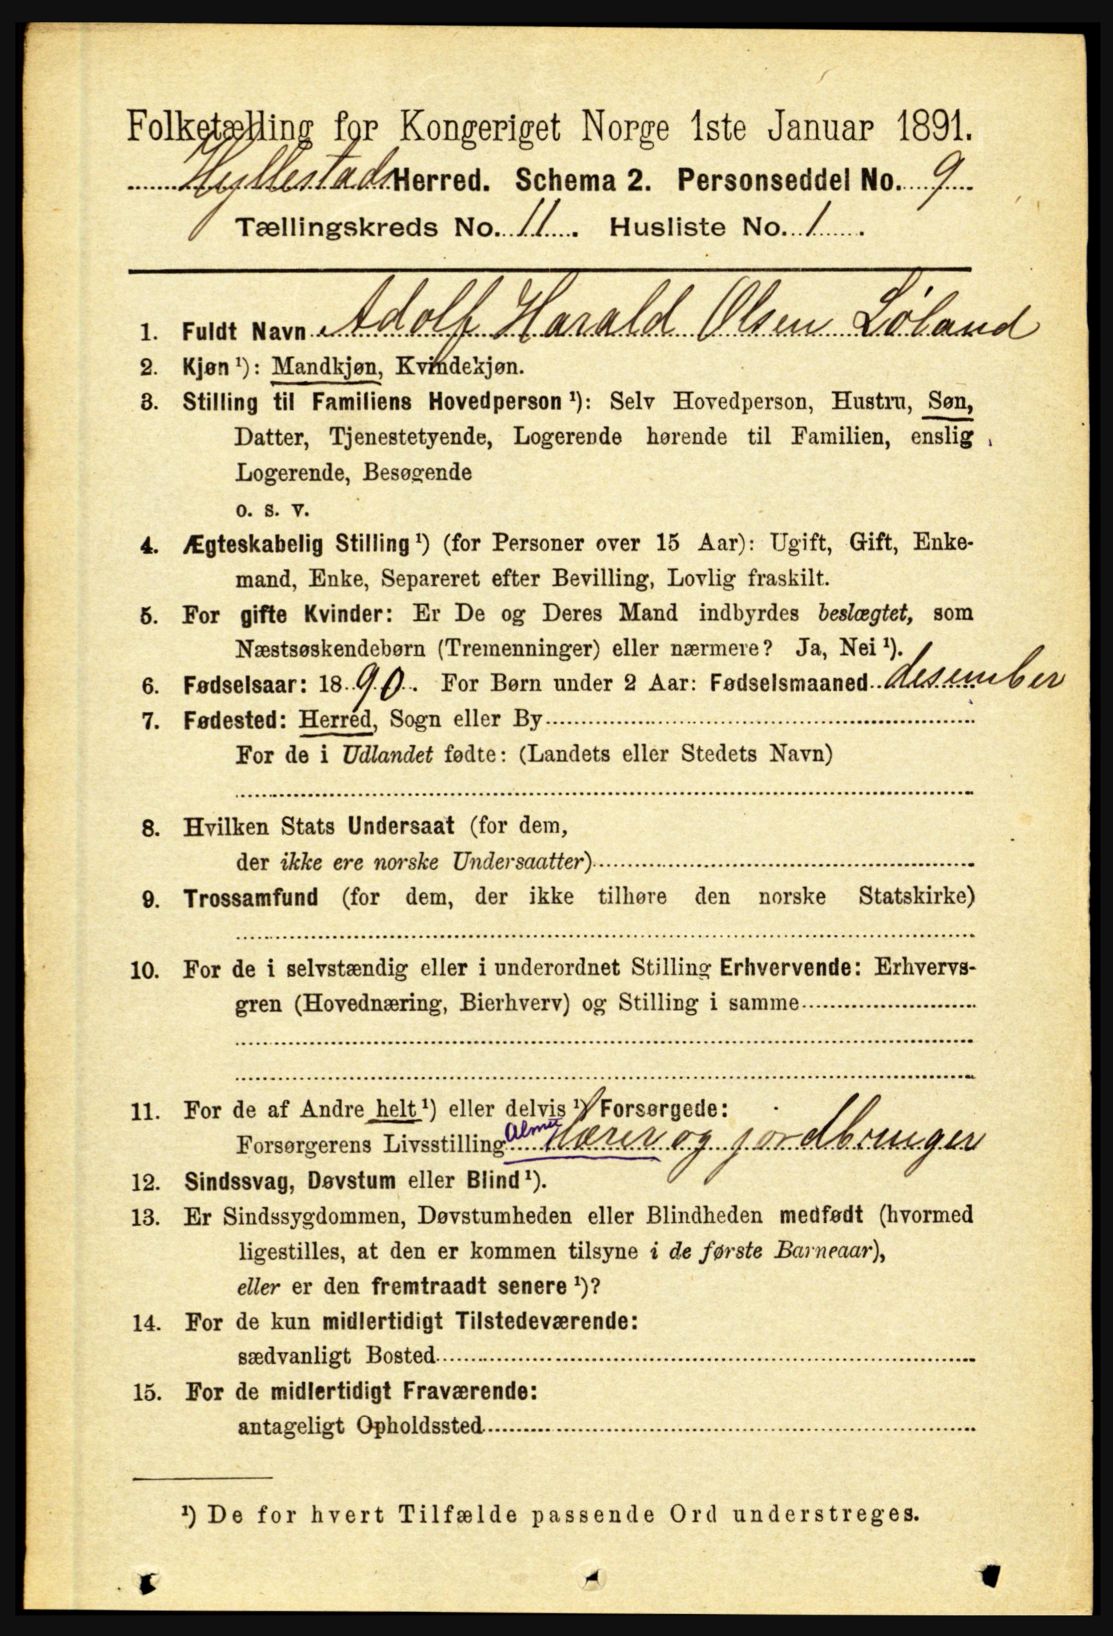 Folketælling for Kongeriget Norge 1ste Januar 1891.
Hyllestads Herred. Schema 2. Personseddel No. 9
Tællingskreds No. 11. Husliste No. 1.
1. Fuldt Navn Adolf Harald Olsen Løland
2. Kjøn ¹): Mandkjøn, Kvindekjøn.
3. Stilling til Familiens Hovedperson ¹): Selv Hovedperson, Hustru, Søn,
Datter, Tjenestetyende, Logerende hørende til Familien, enslig
Logerende, Besøgende
o. s. v.
4. Ægteskabelig Stilling ¹) (for Personer over 15 Aar): Ugift, Gift, Enke-
mand, Enke, Separeret efter Bevilling, Lovlig fraskilt.
5. For gifte Kvinder: Er De og Deres Mand indbyrdes beslægtet, som
Næstsøskendebørn (Tremenninger) eller nærmere? Ja, Nei ¹).
6. Fødselsaar: 1890. For Børn under 2 Aar: Fødselsmaaned desember
7. Fødested: Herred, Sogn eller By
For de i Udlandet fødte: (Landets eller Stedets Navn)
8. Hvilken Stats Undersaat (for dem,
der ikke ere norske Undersaatter)
9. Trossamfund (for dem, der ikke tilhøre den norske Statskirke)
10. For de i selvstændig eller i underordnet Stilling Erhvervende: Erhvervs-
gren (Hovednæring, Bierhverv) og Stilling i samme
11. For de af Andre helt ¹) eller delvis ¹) Forsørgede:
Forsørgerens Livsstilling og jordbruger
12. Sindssvag, Døvstum eller Blind ¹).
13. Er Sindssygdommen, Døvstumheden eller Blindheden medfødt (hvormed
ligestilles, at den er kommen tilsyne i de første Barneaar),
eller er den fremtraadt senere ¹)?
14. For de kun midlertidigt Tilstedeværende:
sædvanligt Bosted
15. For de midlertidigt Fraværende:
antageligt Opholdssted
¹) De for hvert Tilfælde passende Ord understreges.